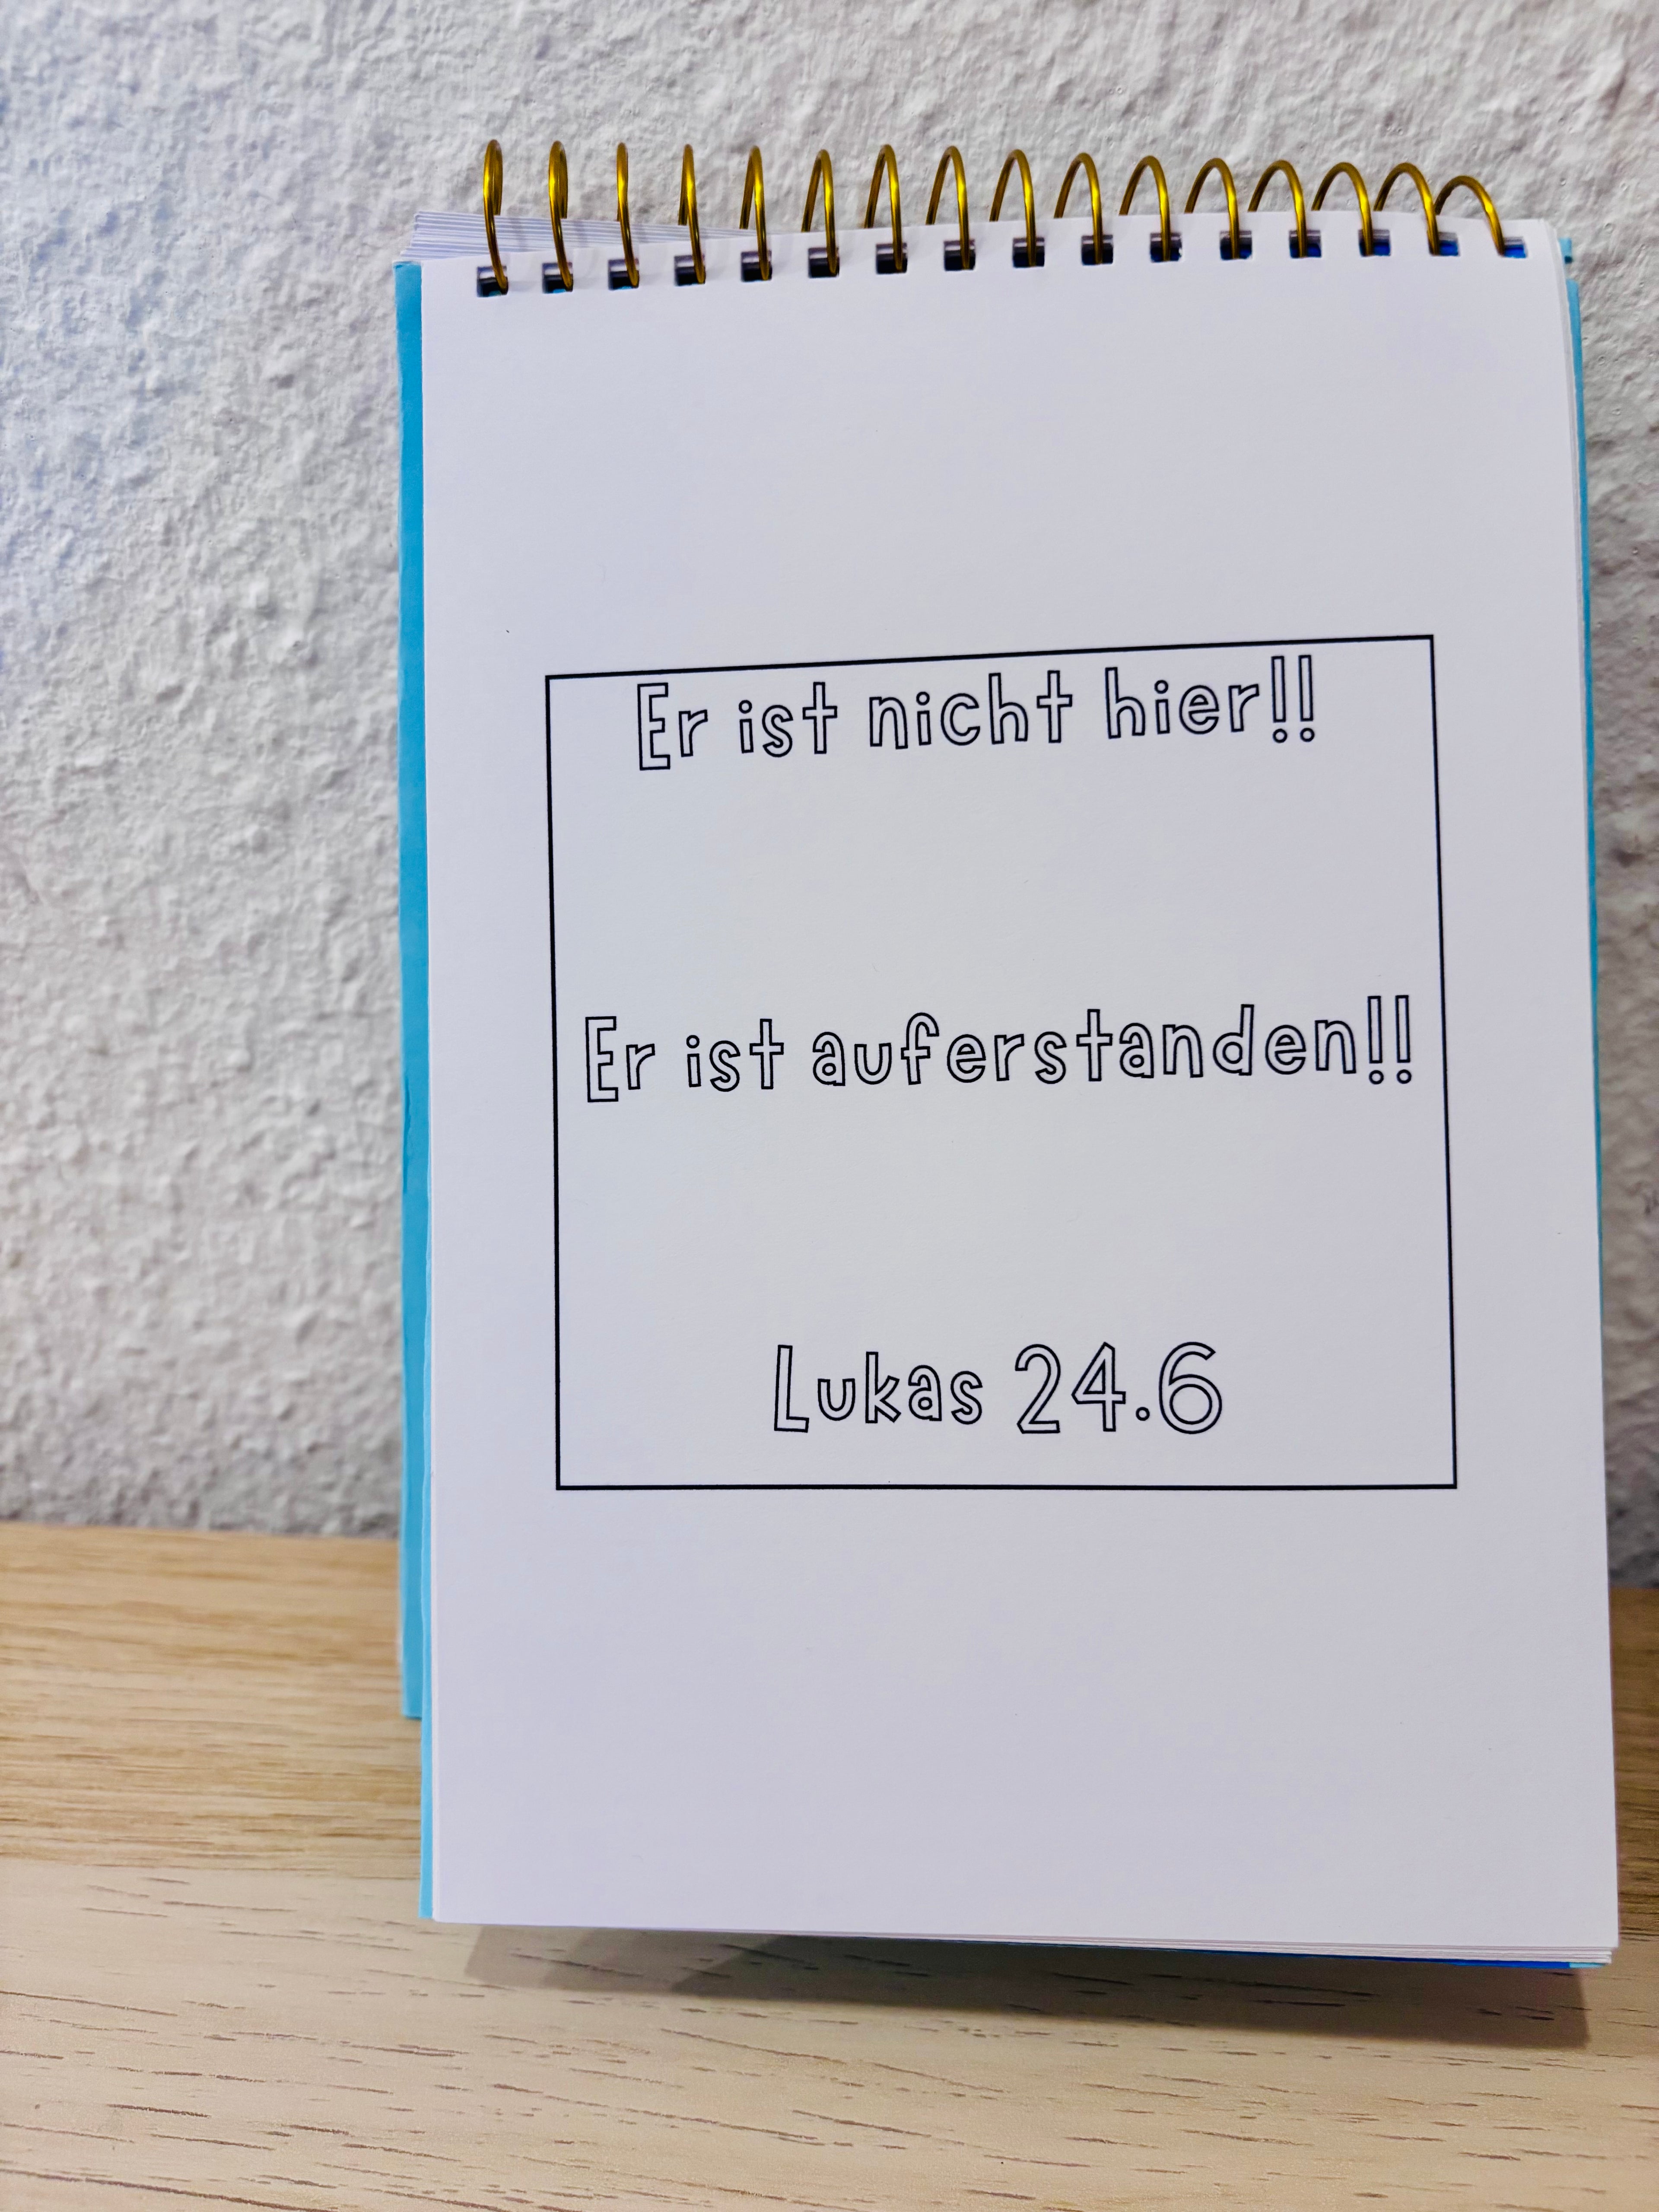 Er ist nicht hier!!
Er ist auferstanden!!
Lukas 24.6